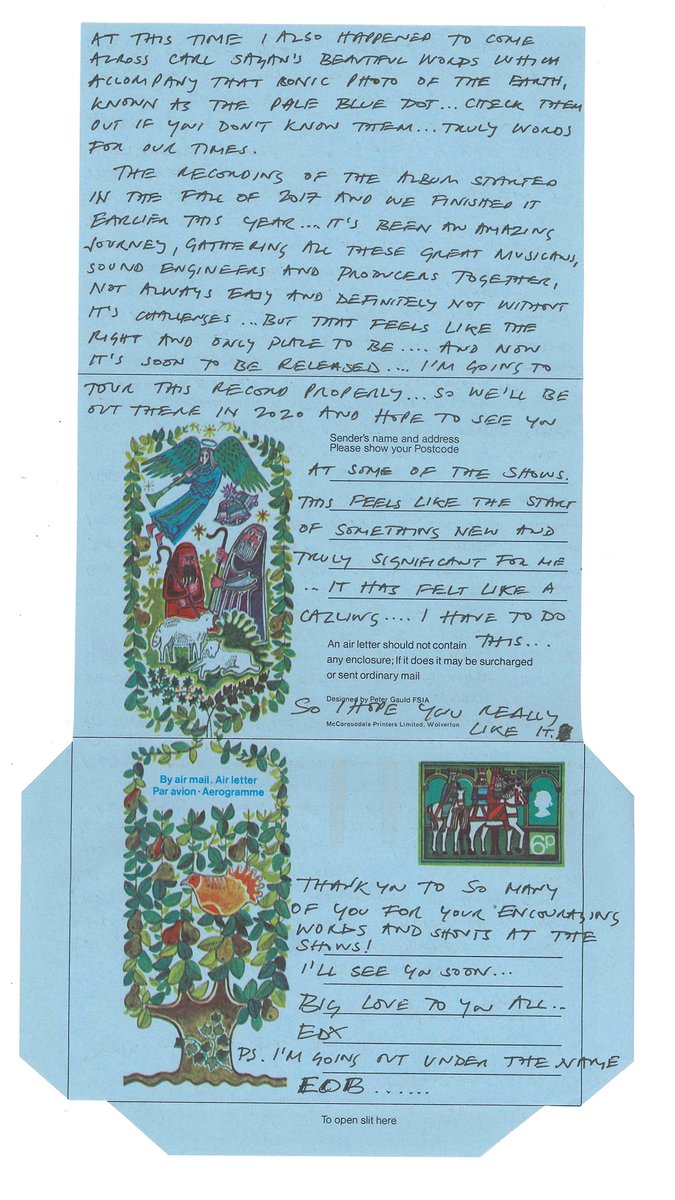 AT THIS TIME I ALSO HAPPENED TO COME
ACROSS CARL SAGAN'S BEATIFUL WORDS WHICH
ACCOMPANY THAT ICONIC PHOTO OF THE EARTH,
KNOWN AS THE PALE BLUE DOT... CHECK THEM
OUT IF YOU DON'T KNOW THEM... TRULY WORDS
FOR OUR TIMES.
THE RECORDING OF THE ALBUM STARTED
IN THE FALL OF 2017 AND WE FINISHED IT
EARLIER THIS YEAR... IT'S BEEN AN AMAZING
JOURNEY, GATHERING ALL THESE GREAT MUSICANS,
SOUND ENGINEERS AND PRODUCERS TOGETHER,
NOT ALWAYS EASY AND DEFINITELY NOT WITHOUT
IT'S CHALLENGES... BUT THAT FEELS LIKE THE
RIGHT AND ONLY PLACE TO BE.... AND NOW
IT'S SOON TO BE RELEASED.... I'M GOING TO
TOUR THIS RECORD PROPERLY... SO WE'LL BE
OUT THERE IN 2020 AND HOPE TO SEE YOU
Sender's name and address
Please show your Postcode
AT SOME OF THE SHOWS.
THIS FEELS LIKE THE START
OF SOMETHING NEW AND
TRULY SIGNIFICANT FOR ME
.. IT HAS FELT LIKE A
CALLING.... I HAVE TO DO
THIS...
An air letter should not contain
any enclosure; If it does it may be surcharged
or sent ordinary mail
Designed by Peter Gauld FSIA
SO I HOPE YOU REALLY
LIKE IT.
McCorquodale Printers Limited, Wolverton
By air mail. Air letter
Par avion · Aerogramme
6p
THANK YN TO SO MANY
OF YOU FOR YOUR ENCOURAGING
WORDS AND SHOUTS AT THE
SHOWS!
I'LL SEE YOU SOON...
BIG LOVE TO YOU ALL..
EDX
PS. I'M GOING OUT UNDER THE NAME
EOB ......
To open slit here